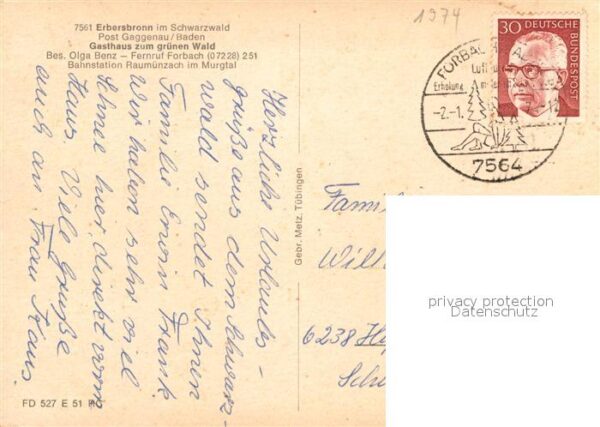 7561 Erbersbronn im Schwarzwald
Post Gaggenau/Baden
Gasthaus zum grünen Wald
Bes. Olga Benz – Fernruf Forbach (07228) 251
Bahnstation Raumünzach im Murgtal
1974
30 DEUTSCHE BUNDESPOST
FORBACH
Luft
Erholung
-2.-1.
7564
Herzliche Urlaubs-
grüße aus dem Schwarz-
wald sendet Ihnen
Familie Erwin Frank
Wir haben sehr viel
Schnee hier, direkt vorm
Haus. Viele Grüße
auch an Frau Kraus.
Gebr. Metz, Tübingen
Famil
Will
6238 H
Sch
privacy protection
Datenschutz
FD 527 E 51